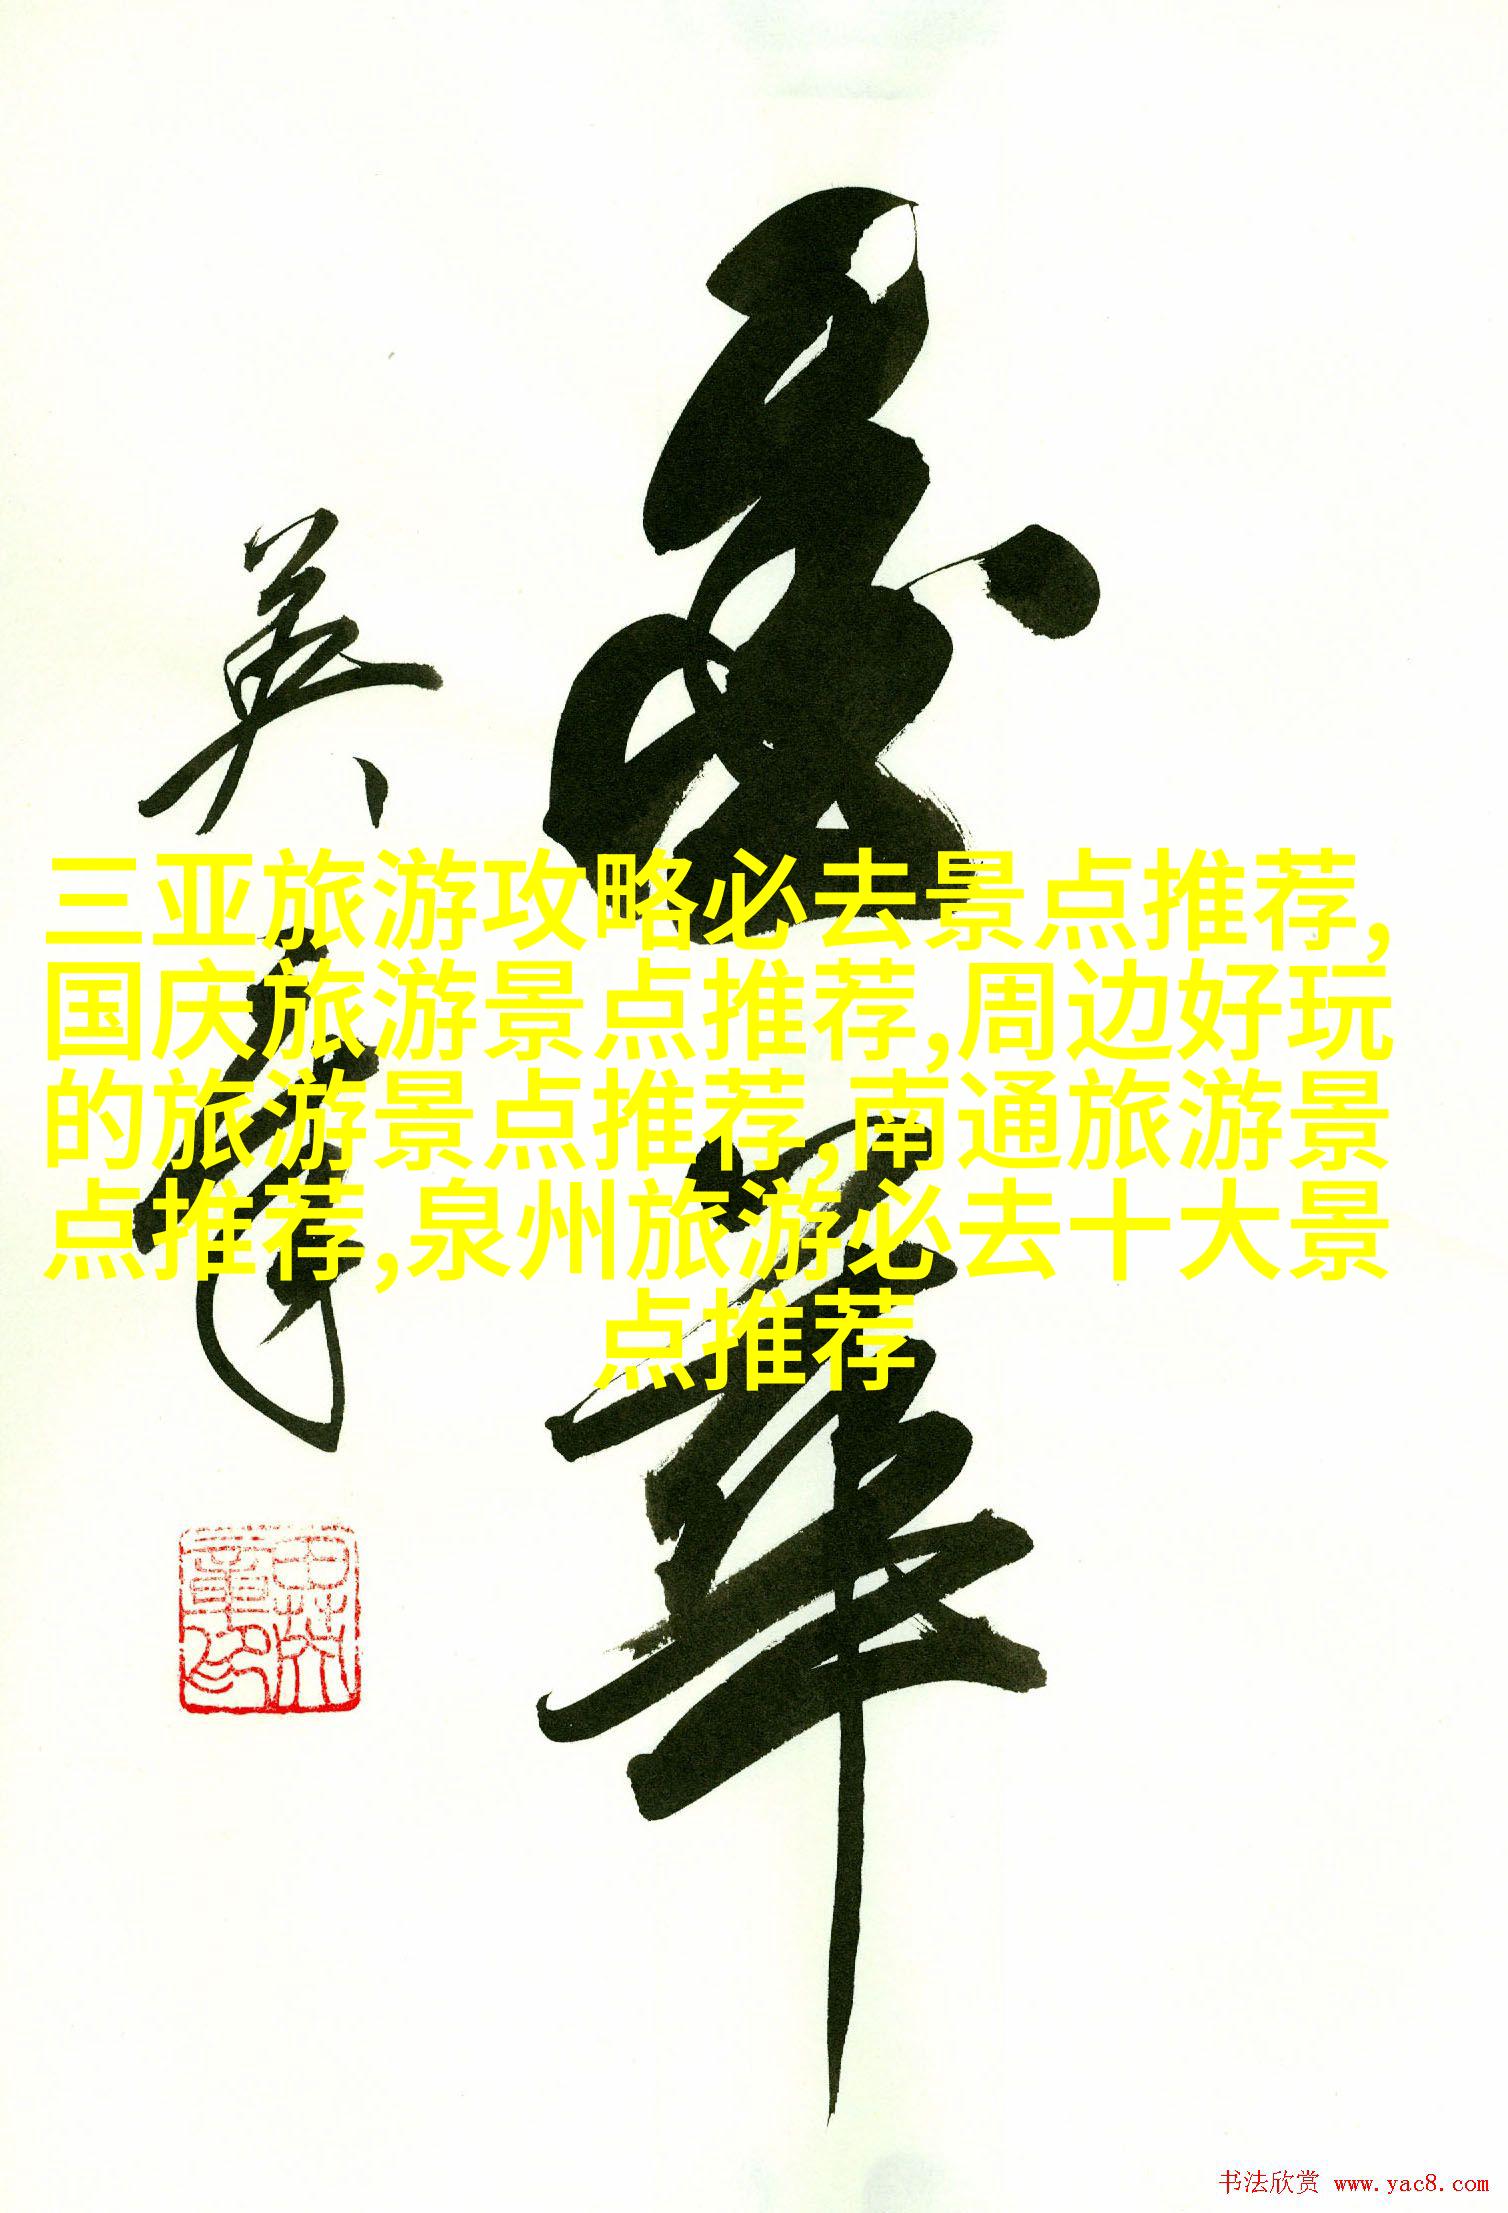 三亚旅游攻略必去景点推荐,
国庆旅游景点推荐,周边好玩
的旅游景点推荐,南通旅游景
点推荐,泉州旅游必去十大景
点推荐
英章
书法欣赏 www.yac8.com